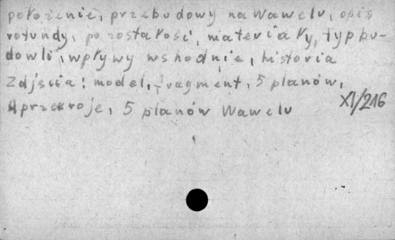 położenie, przebudowy na Wawelu, opis
rotundy, pozostałość, materiały, typ bu-
dowli, wpływy wschodnie, historia
Zdjęcia: model, fragment, 5 planów,
przekroje, 5 planów Wawelu
XI/216